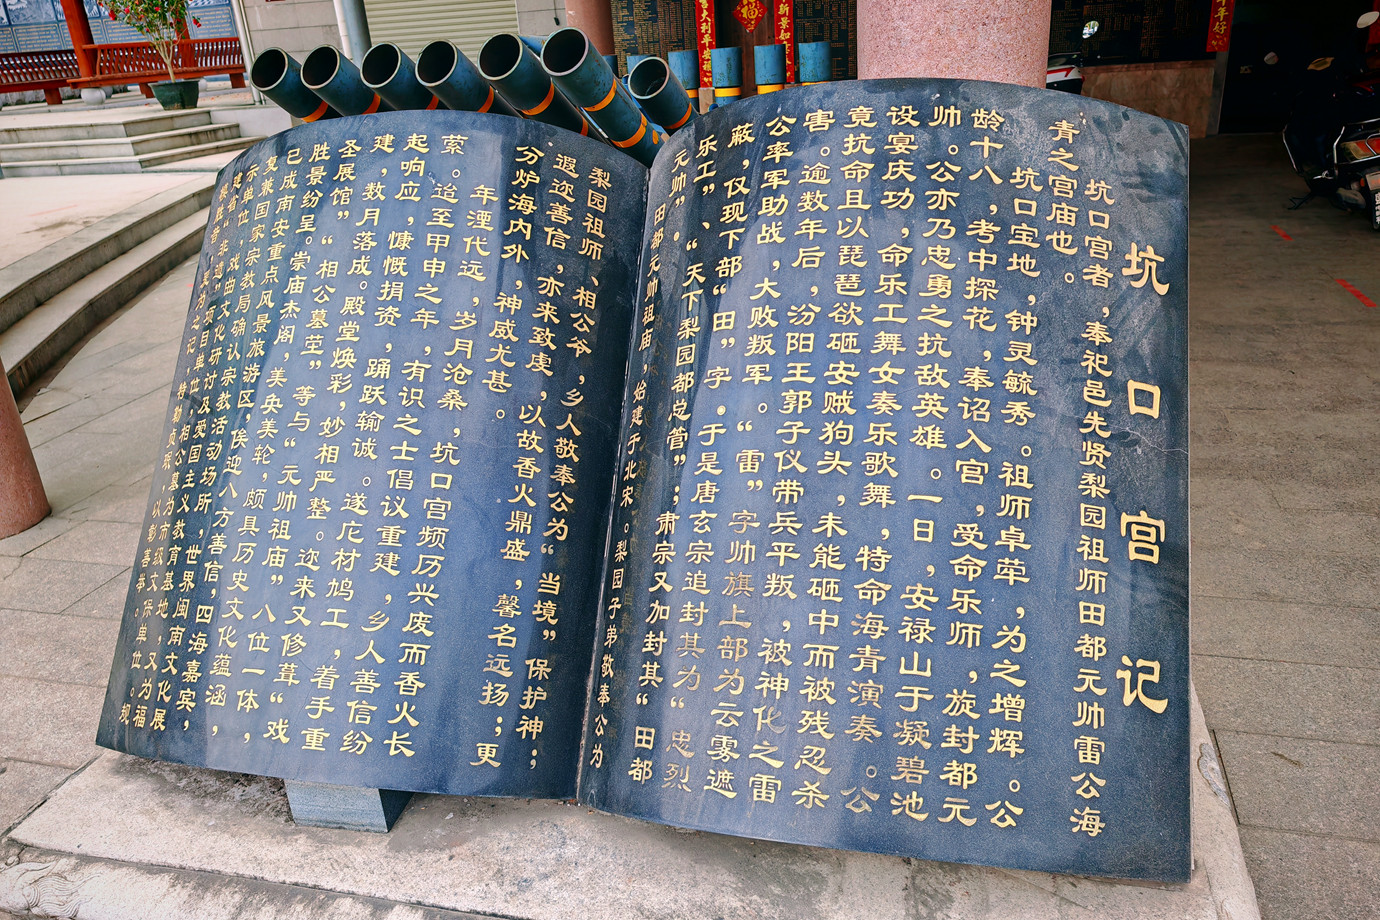 坑口宫记
坑口宫者，奉祀邑先贤梨园祖师田都元帅雷公海
青之宫庙也。
坑口宝地，钟灵毓秀。祖师卓荦，为之增辉。公
龄十八，考中探花，奉诏入宫，受命乐师，旋封都元
帅。公亦乃忠勇之抗敌英雄。一日，安禄山于凝碧池
设宴庆功，命乐工舞女奏乐歌舞，特命海青演奏。公
竟抗命且以琵琶欲砸安贼狗头，未能砸中而被残忍杀
害。逾数年后，汾阳王郭子仪带兵平叛，被神化之雷
公率军助战，大败叛军。“雷”字帅旗上部为云雾遮
蔽，仅现下部“田”字。于是唐玄宗追封其为“忠烈
乐工”、“天下梨园都总管”；肃宗又加封其“田都
元帅”。
田都元帅祖庙，始建于北宋。梨园子弟敬奉公为
梨园祖师、相公爷，乡人敬奉公为“当境”保护神；
遐迩善信，亦来致虔，以故香火鼎盛，馨名远扬；更
分炉海内外，神威尤甚。
年湮代远，岁月沧桑，坑口宫频历兴废而香火长
萦。迨至甲申之年，有识之士倡议重建，乡人善信纷
起响应，慷慨捐资，踊跃输诚。遂庀材鸠工，着手重
建，数月落成。殿堂焕彩，妙相严整。迩来又修葺“戏
圣展馆”“相公墓茔”等与“元帅祖庙”八位一体，
胜景纷呈。崇庙杰阁，美奂美轮，颇具历史文化蕴涵，
已成南安重点风景旅游区，俟迎八方善信，四海嘉宾，
复兼国家宗教局确认宗教活动场所，世界闽南文化展
示单位，戏曲文化研讨及爱国主义教育基地，又为福
建省“非遗”项目单位，相公墓为市级文保单位。规
模胜昔，爰为之记，特勒贞珉，以彰善举。
大利平安
福
年年好